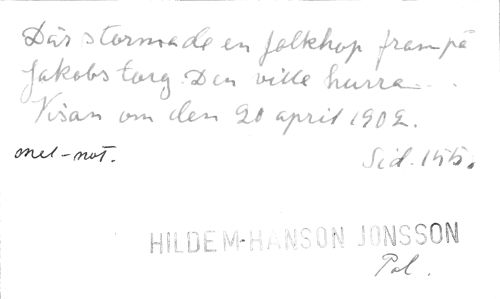 Där stormade en folkhop fram på
Jakobs torg. Den ville hurra...
Visan om den 20 april 1902.
mel-not. Sid. 155.
HILDEM-HANSON JONSSON
Pol.